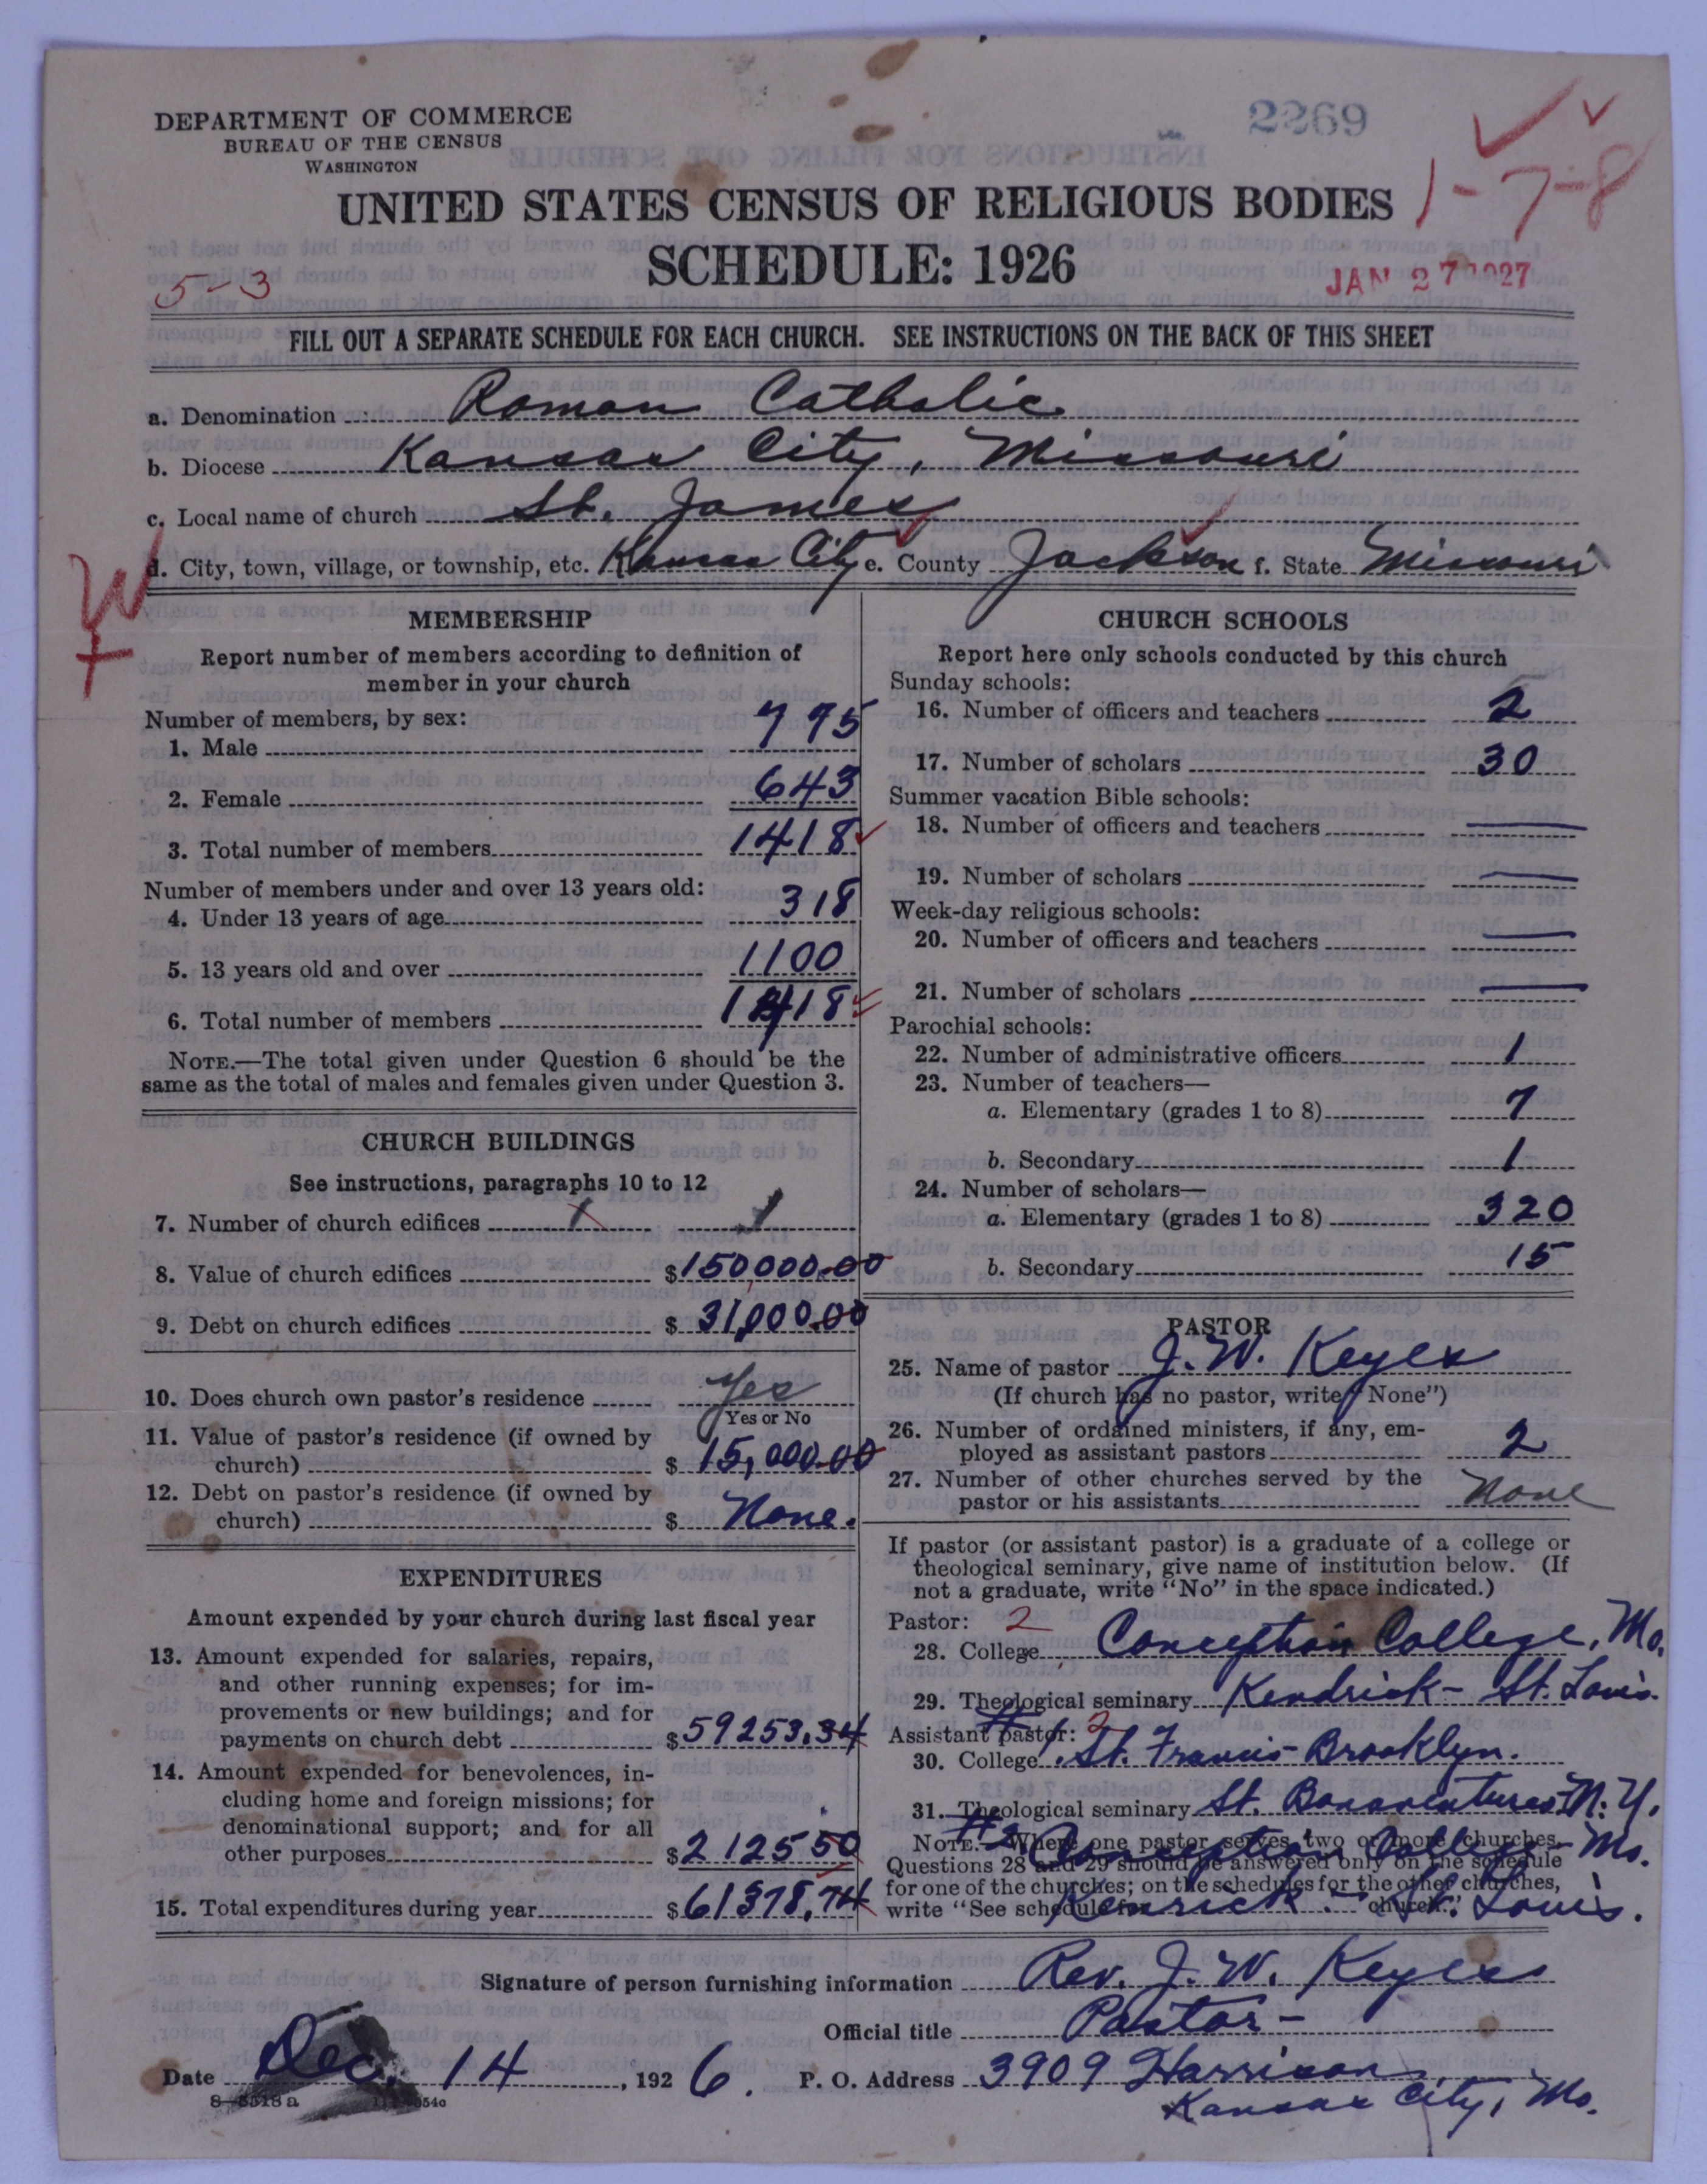 DEPARTMENT OF COMMERCE
BUREAU OF THE CENSUS
WASHINGTON
2269
UNITED STATES CENSUS OF RELIGIOUS BODIES
1-7-8
SCHEDULE: 1926
5-3
JAN 27 1927
FILL OUT A SEPARATE SCHEDULE FOR EACH CHURCH. SEE INSTRUCTIONS ON THE BACK OF THIS SHEET
a. Denomination Roman Catholic
b. Diocese Kansas City, Missouri
c. Local name of church St. James
d. City, town, village, or township, etc. Kansas City e. County Jackson f. State Missouri
MEMBERSHIP
Report number of members according to definition of
member in your church
Number of members, by sex:
1. Male 775
2. Female 643
3. Total number of members 1418
Number of members under and over 13 years old:
4. Under 13 years of age 318
5. 13 years old and over 1100
6. Total number of members 1418
NOTE.—The total given under Question 6 should be the
same as the total of males and females given under Question 3.
CHURCH BUILDINGS
See instructions, paragraphs 10 to 12
7. Number of church edifices 1 1
8. Value of church edifices $150000.00
9. Debt on church edifices $31,000.00
10. Does church own pastor's residence Yes
Yes or No
11. Value of pastor's residence (if owned by
church) $15,000.00
12. Debt on pastor's residence (if owned by
church) $None.
EXPENDITURES
Amount expended by your church during last fiscal year
13. Amount expended for salaries, repairs,
and other running expenses; for im-
provements or new buildings; and for
payments on church debt $59253.34
14. Amount expended for benevolences, in-
cluding home and foreign missions; for
denominational support; and for all
other purposes $2125 50
15. Total expenditures during year $61378.74
CHURCH SCHOOLS
Report here only schools conducted by this church
Sunday schools:
16. Number of officers and teachers 2
17. Number of scholars 30
Summer vacation Bible schools:
18. Number of officers and teachers —
19. Number of scholars —
Week-day religious schools:
20. Number of officers and teachers —
21. Number of scholars —
Parochial schools:
22. Number of administrative officers 1
23. Number of teachers—
a. Elementary (grades 1 to 8) 7
b. Secondary 1
24. Number of scholars—
a. Elementary (grades 1 to 8) 320
b. Secondary 15
PASTOR
25. Name of pastor J. W. Keyes
(If church has no pastor, write "None")
26. Number of ordained ministers, if any, em-
ployed as assistant pastors 2
27. Number of other churches served by the
pastor or his assistants None
If pastor (or assistant pastor) is a graduate of a college or
theological seminary, give name of institution below. (If
not a graduate, write "No" in the space indicated.)
Pastor: 2
28. College Conception College, Mo.
29. Theological seminary Kendrick - St. Louis.
Assistant pastor: #1. 2
30. College St. Francis - Brooklyn.
31. Theological seminary St. Bonaventures N. Y.
#2 Conception College - Mo.
NOTE.—Where one pastor serves two or more churches,
Questions 28 and 29 should be answered only on the schedule
for one of the churches; on the schedules for the other churches,
write "See schedule for church."
Kenrick - St. Louis.
Signature of person furnishing information Rev. J. W. Keyes
Official title Pastor -
Date Dec. 14, 1926. P. O. Address 3909 Harrison
Kansas City, Mo.